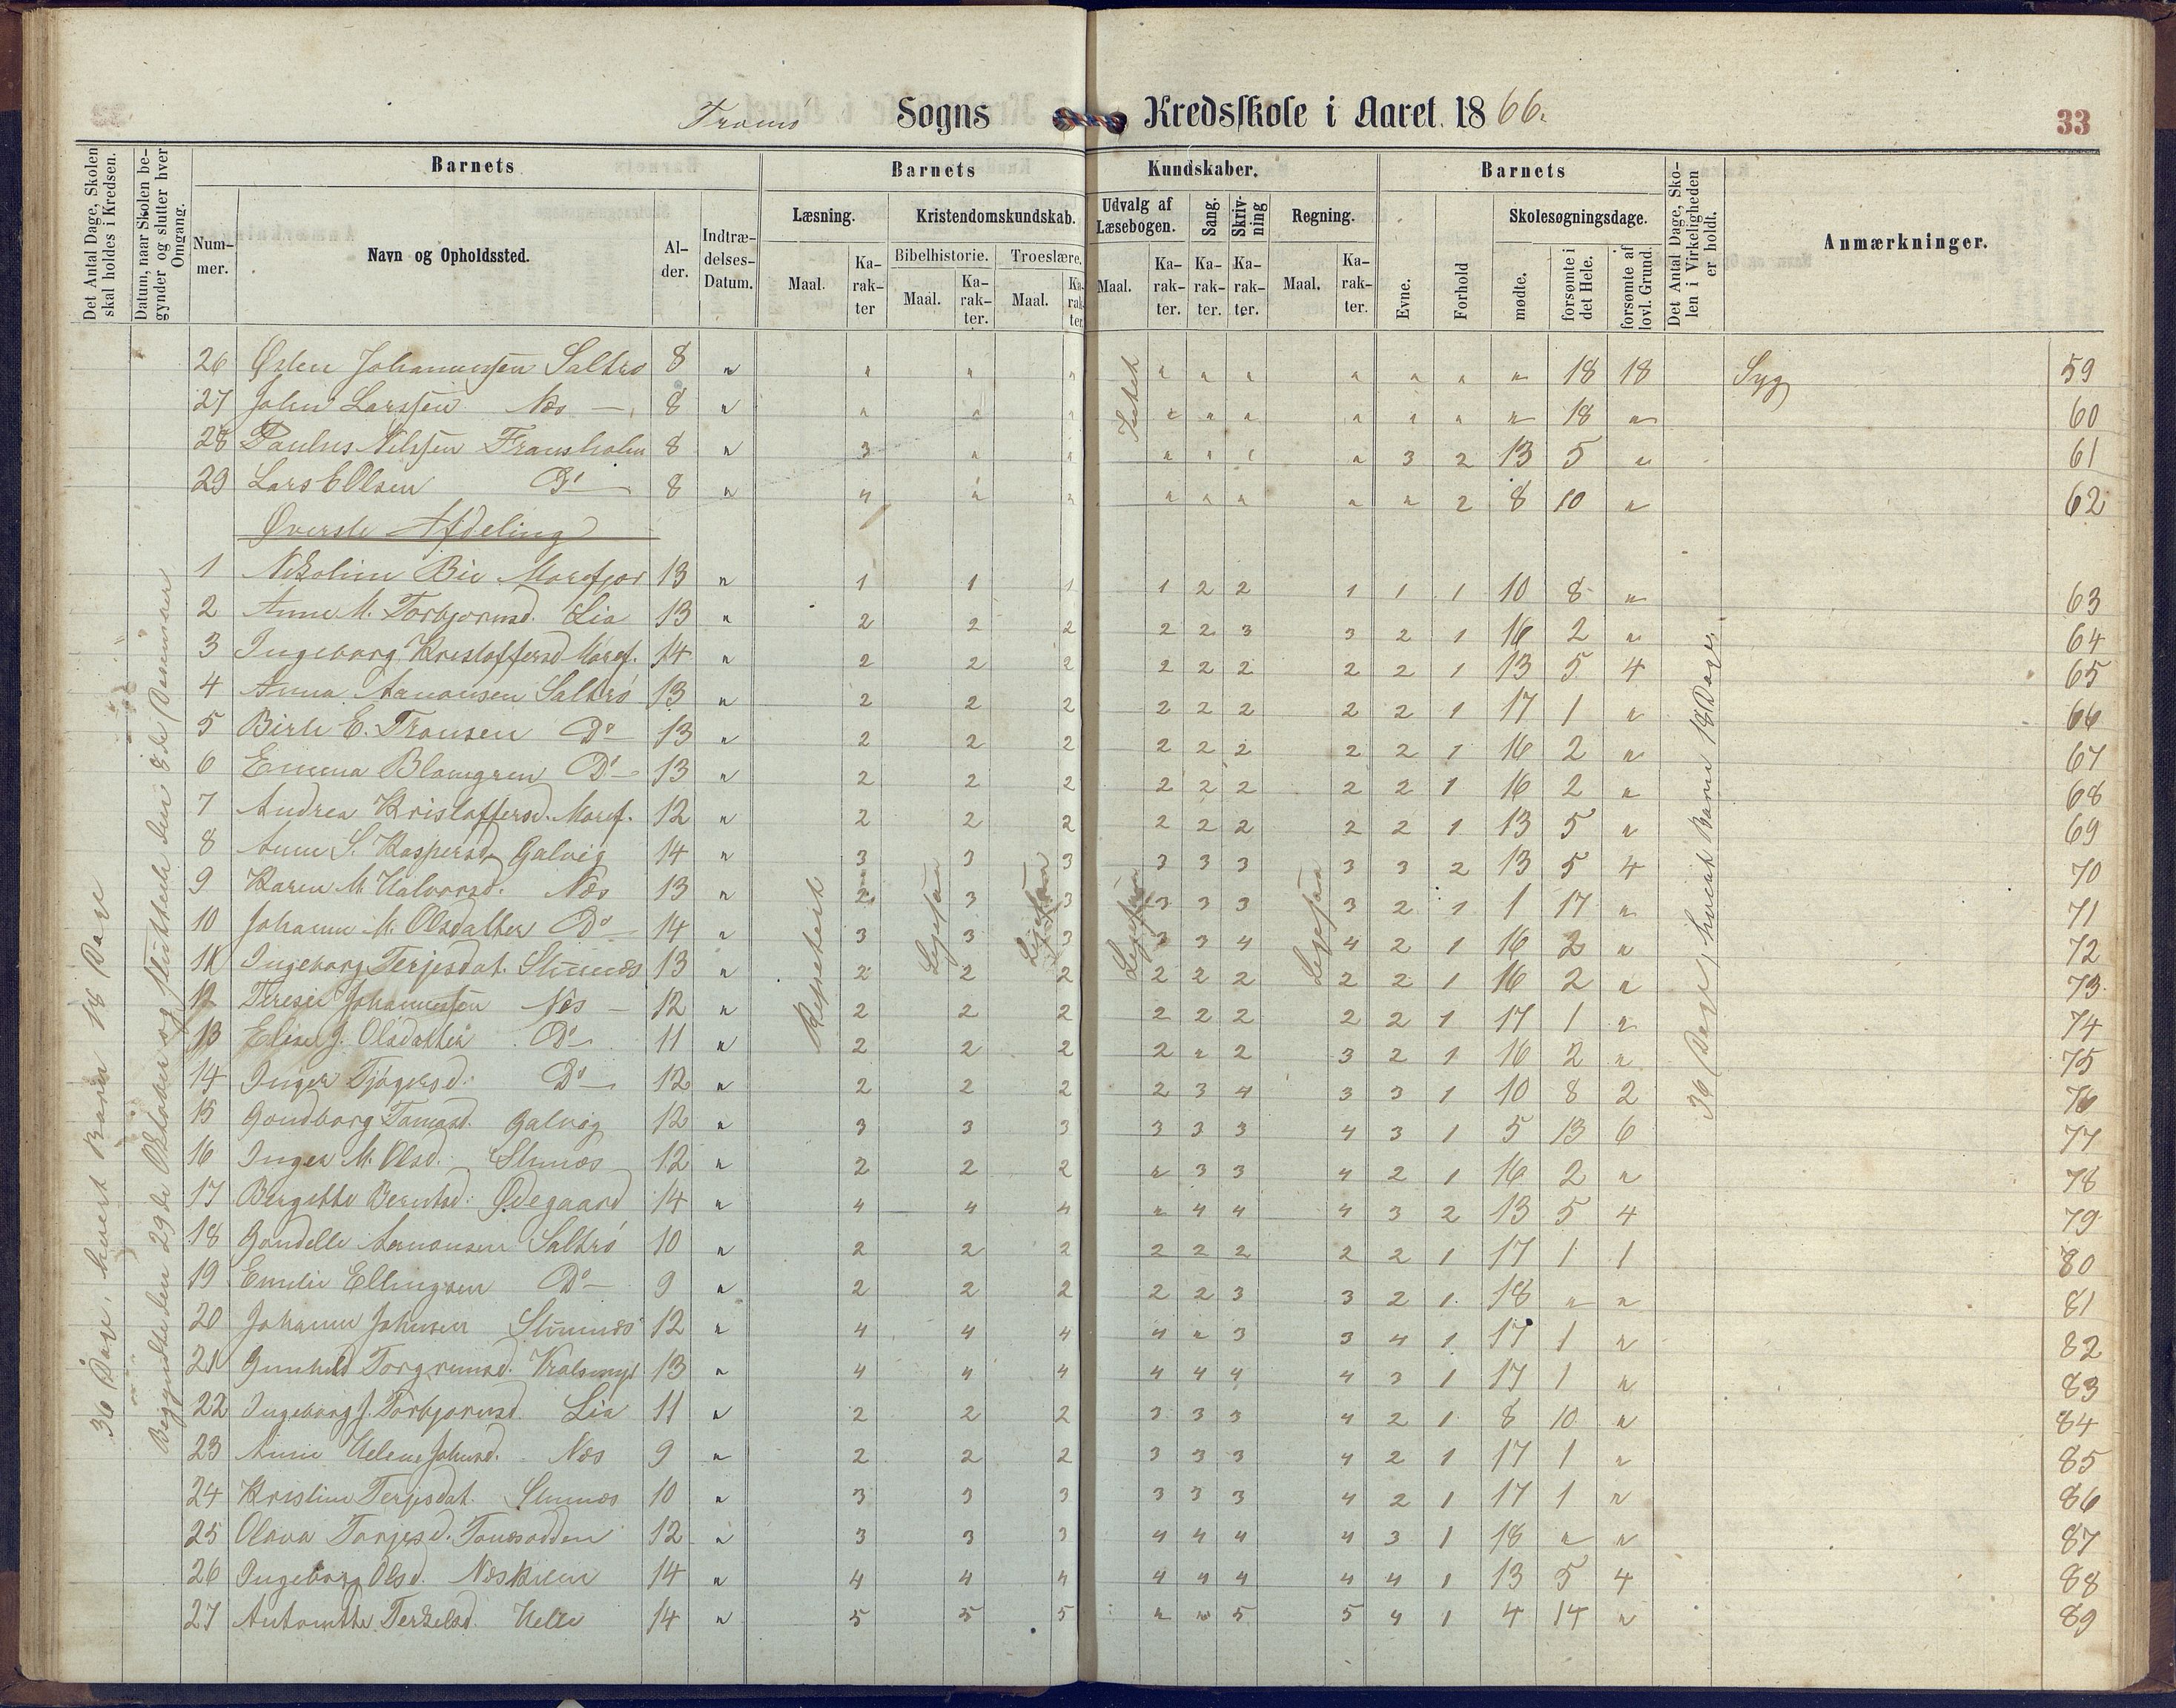 Sogns Kredsskole i Aaret 1866. 33
Det Antal Dage, Skolen skal holdes i Kredsen.
Datum, naar Skolen begynder og slutter hver Omgang.
Barnets Barnets Kundskaber. Barnets
Nummer. Navn og Opholdssted. Alder. Indtrædelses-Datum.
Læsning. Kristendomskundskab. Udvalg af Læsebogen. Sang. Skrivning Regning.
Bibelhistorie. Troeslære.
Maal. Karakter Maal. Karakter. Maal. Karakter. Maal. Karakter. Karakter. Karakter. Maal. Karakter.
Evne. Forhold Skolesøgningsdage. mødte. forsømte i det Hele. forsømte af lovl. Grund.
Det Antal Dage, Skolen i Virkeligheden er holdt.
Anmærkninger.
26 Østen Johannessen Saltrø 8 " " " " " " " " " " " 18 18 Syg 59
27 John Larssen Næs 8 " " " " " " " " " " " 18 " 60
28 Paulus Nilssen Framsholm 8 " 3 " " " " " " 3 2 13 5 " 61
29 Lars E Olsen Do 8 " 4 " " " " " " " 2 8 10 " 62
Øverste Afdeling
1 Nikoline Bie Morefjær 13 " 1 1 1 1 2 2 1 1 1 10 8 " 63
2 Anne M. Torbjørnsd. Lia 13 " 2 2 2 2 2 3 3 2 1 16 2 " 64
3 Ingeborg Kristoffersd Moref. 14 " 2 2 2 2 2 2 2 2 1 13 5 4 65
4 Anna Aanonsen Saltrø 13 " 2 2 2 2 2 2 2 2 1 17 1 " 66
5 Birte E. Tronsen Do 13 " 2 2 2 2 2 2 2 2 1 16 2 " 67
6 Emma Blomgren Do 13 " 2 2 2 2 2 2 2 2 1 16 2 " 68
7 Andrea Kristoffersd. Moref. 12 " 2 2 2 2 2 2 2 2 1 13 5 " 69
8 Anne S. Kaspersd. Galvig 14 " 3 3 3 3 3 3 3 3 2 13 5 4 70
9 Karen M. Halvorsd. Næs 13 " 2 3 3 3 3 3 3 2 1 1 17 " 71
10 Johanne M. Olsdatter Do 14 " 3 3 3 3 3 4 4 2 1 16 2 " 72
11 Ingeborg Terjesdat. Stunæs 13 " 2 2 2 2 2 2 2 2 1 16 2 " 73
12 Teresie Johannessen Næs 12 " 2 2 2 2 2 2 2 2 1 17 1 " 74
13 Elise J. Olsdatter Do 11 " 2 2 2 2 " 2 3 2 1 16 2 " 75
14 Inger Tjøgersd. Do 12 " 2 2 2 2 3 4 3 3 1 10 8 2 76
15 Gondborg Tomasd. Galvig 12 " 3 3 3 3 3 3 4 3 1 5 13 6 77
16 Inger M. Olsd. Stunæs 12 " 2 2 2 " 3 3 4 2 1 16 2 " 78
17 Bergitte Berntsd. Ødegaard 14 " 4 4 4 " 4 4 4 3 2 13 5 4 79
18 Gondelle Aanonsen Saltrø 10 " 2 2 2 2 2 2 2 2 1 17 1 1 80
19 Emilie Ellingsen Do 9 " 2 2 2 2 2 3 3 2 1 18 " " 81
20 Johanne Johnsen Stunnæs 12 " 4 4 4 4 " 3 3 4 1 17 1 " 82
21 Gunhild Torgrimsd. 13 " 4 4 4 4 4 4 4 3 1 17 1 " 83
22 Ingeborg J. Torbjørnsd. Lia 11 " 2 2 2 3 3 3 4 2 1 8 10 " 84
23 Anne Helene Johnsd. Næs 9 " 2 2 2 3 3 3 4 2 1 17 1 " 85
24 Kristine Terjesdat. Stunnæs 10 " 3 3 3 3 3 3 4 2 1 17 1 " 86
25 Olava Tarjesd. 12 " 3 3 3 4 4 4 4 3 1 18 " " 87
26 Ingeborg Olsd. Næskilen 14 " 4 4 4 4 4 4 4 4 1 13 5 4 88
27 Antonette Terkelsd. Helle 14 " 5 5 5 " " 5 5 4 1 4 14 " 89
36 Dage, hvert Barn 18 Dage
Begyndte den 29de Oktober og sluttede den 8de Desember
Repeteret
Ligesaa
Ligesaa
Ligesaa
Ligesaa
36 Dage, hvert Barn 18 Dage.